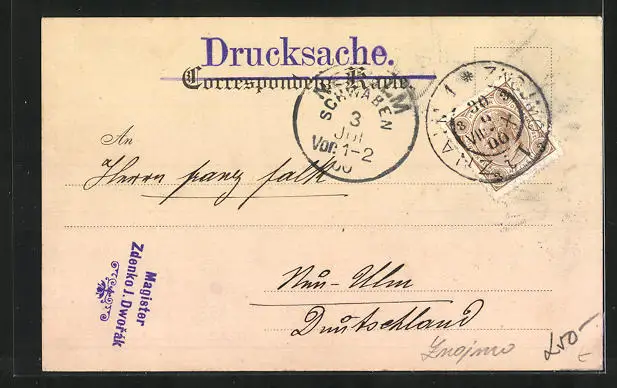 Drucksache.
Correspondenz-Karte.
SCHWABEN
3
JUL
Vor. 1-2
00
ZNAIM 1 * ZNOJMO 1
30
An
Herrn Franz Falk
Neu-Ulm
Deutschland
Magister
Zdenko J. Dwořák
Znojmo